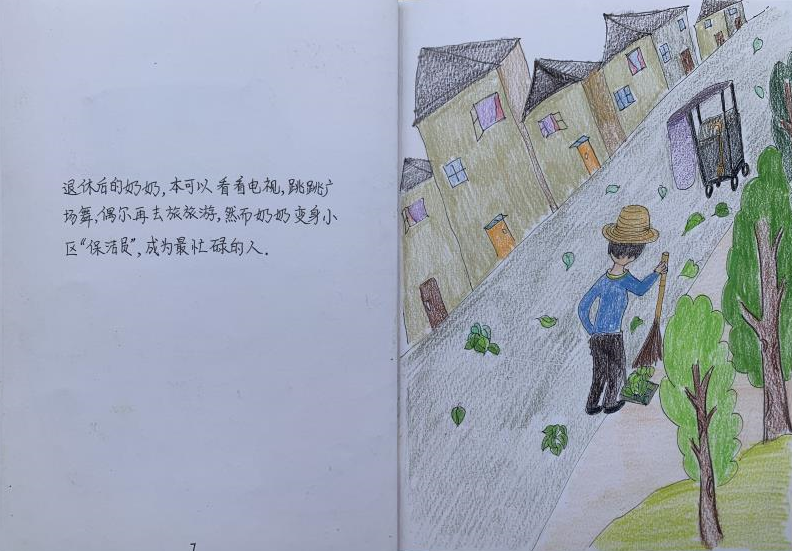 退休后的奶奶,本可以看看电视,跳跳广
场舞,偶尔再去旅旅游,然而奶奶变身小
区“保洁员”,成为最忙碌的人.
7